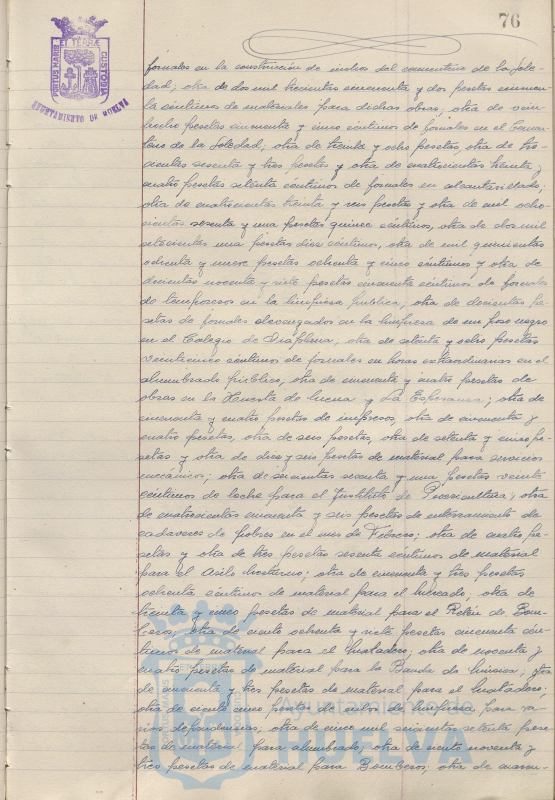 76
PORTUS MARIS ET TERRAE CUSTODIA
AYUNTAMIENTO DE HUELVA
jornales en la construcción de nichos del cementerio de la Sole-
dad; otra de dos mil trescientas cincuenta y dos pesetas cincuen-
ta céntimos de materiales para dichas obras, otra de vein-
tiocho pesetas cincuenta y cinco céntimos de jornales en el Cemen-
terio de la Soledad, otra de treinta y ocho pesetas, otra de tres-
cientas sesenta y tres pesetas y otra de cuatrocientas treinta y
cuatro pesetas setenta céntimos de jornales en alcantarillado;
otra de cuatrocientas treinta y seis pesetas y otra de mil ocho-
cientas sesenta y una pesetas quince céntimos, otra de dos mil
setecientas una pesetas diez céntimos, otra de mil quinientas
ochenta y nueve pesetas ochenta y cinco céntimos y otra de
doscientas noventa y siete pesetas cincuenta céntimos de jornales
de temporeros en la limpieza pública; otra de doscientas pe-
setas de jornales devengados en la limpieza de un pozo negro
en el Colegio de, otra de setenta y ocho pesetas
veinticinco céntimos de jornales en horas extraordinarias en el
alumbrado público, otra de cincuenta y cuatro pesetas de
obras en la Huerta de Mena y La Esperanza; otra de
cincuenta y cuatro pesetas de impresos, otra de cincuenta y
cuatro pesetas, otra de seis pesetas, otra de setenta y cinco pe-
setas y otra de diez y seis pesetas de material para servicios
mecánicos; otra de seiscientas sesenta y una pesetas veinte
céntimos de leche para el Instituto de Puericultura; otra
de cuatrocientas cincuenta y seis pesetas de enterramiento de
cadáveres de pobres en el mes de Febrero; otra de cuatro pe-
setas y otra de tres pesetas sesenta céntimos de material
para el Asilo Nocturno; otra de cincuenta y tres pesetas
ochenta céntimos de material para el Mercado, otra de
treinta y cinco pesetas de material para el Retén de Bom-
beros, otra de ciento ochenta y siete pesetas cincuenta cén-
timos de material para el Matadero; otra de noventa y
cuatro pesetas de material para la Banda de música; otra
de cincuenta y tres pesetas de material para el Matadero;
otra de ciento cinco pesetas de cubos de limpieza para va-
rias dependencias, otra de cinco mil seiscientas setenta pese-
tas de material para alumbrado; otra de ciento noventa y
tres pesetas de material para Bomberos; otra de cuaren-
Ayuntamiento de
HUELVA